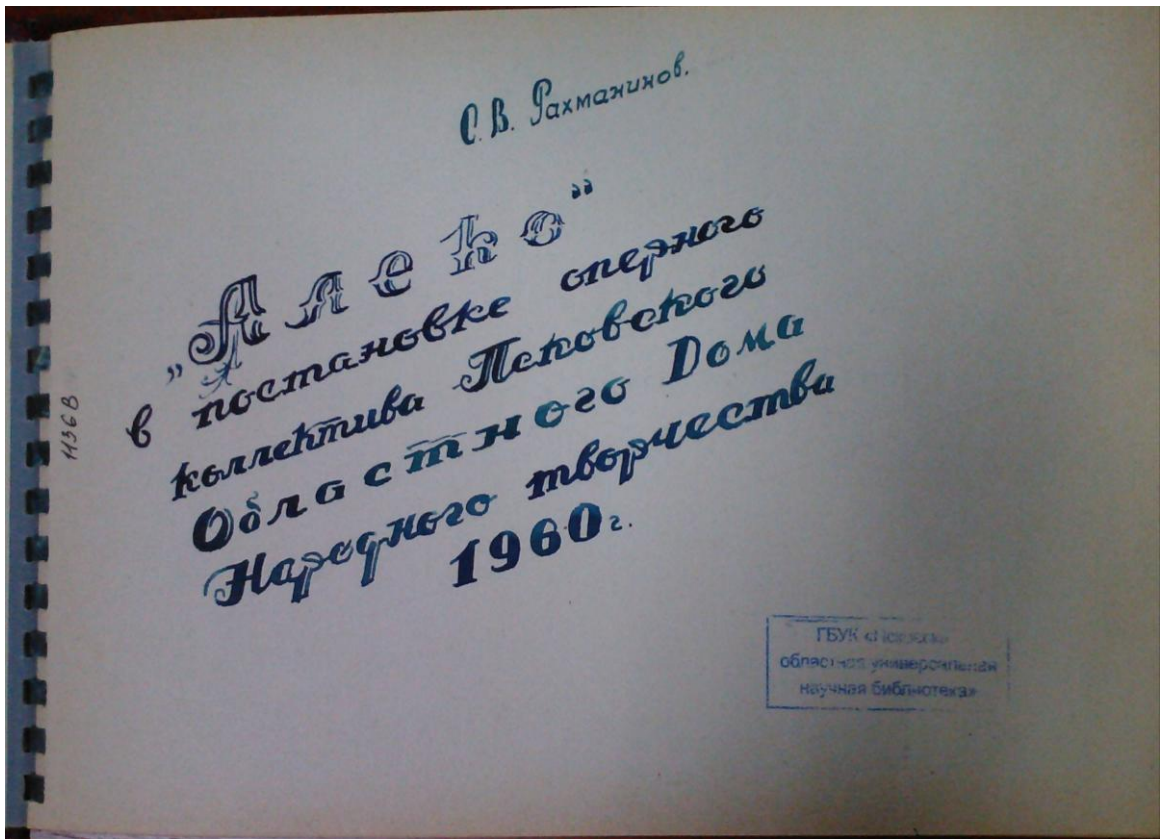 С. В. Рахманинов.
„Алеко“
в постановке оперного
коллектива Псковского
Областного Дома
Народного творчества
1960 г.
ГБУК
областная универсальная
научная библиотека»